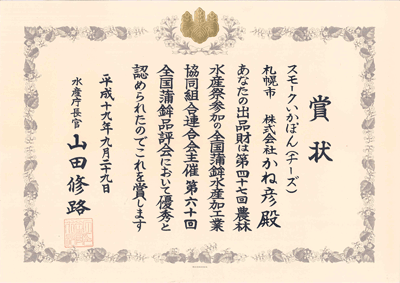 賞状
スモークいかぽん（チーズ）
札幌市　株式会社かね彦殿
あなたの出品財は第四十七回農林
水産祭参加の全国蒲鉾水産加工業
協同組合連合会主催 第六十回
全国蒲鉾品評会において優秀と
認められたのでこれを賞します
平成十九年九月二十九日
水産庁長官 山田修路